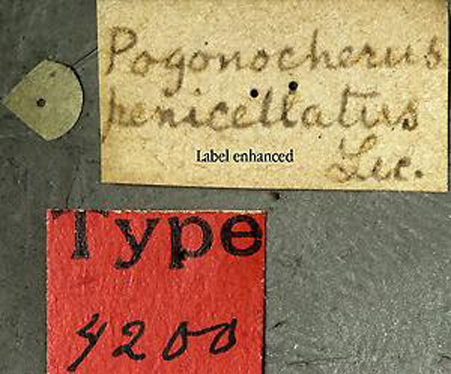 Pogonocherus
penicellatus
Label enhanced
Lec.
Type
4200